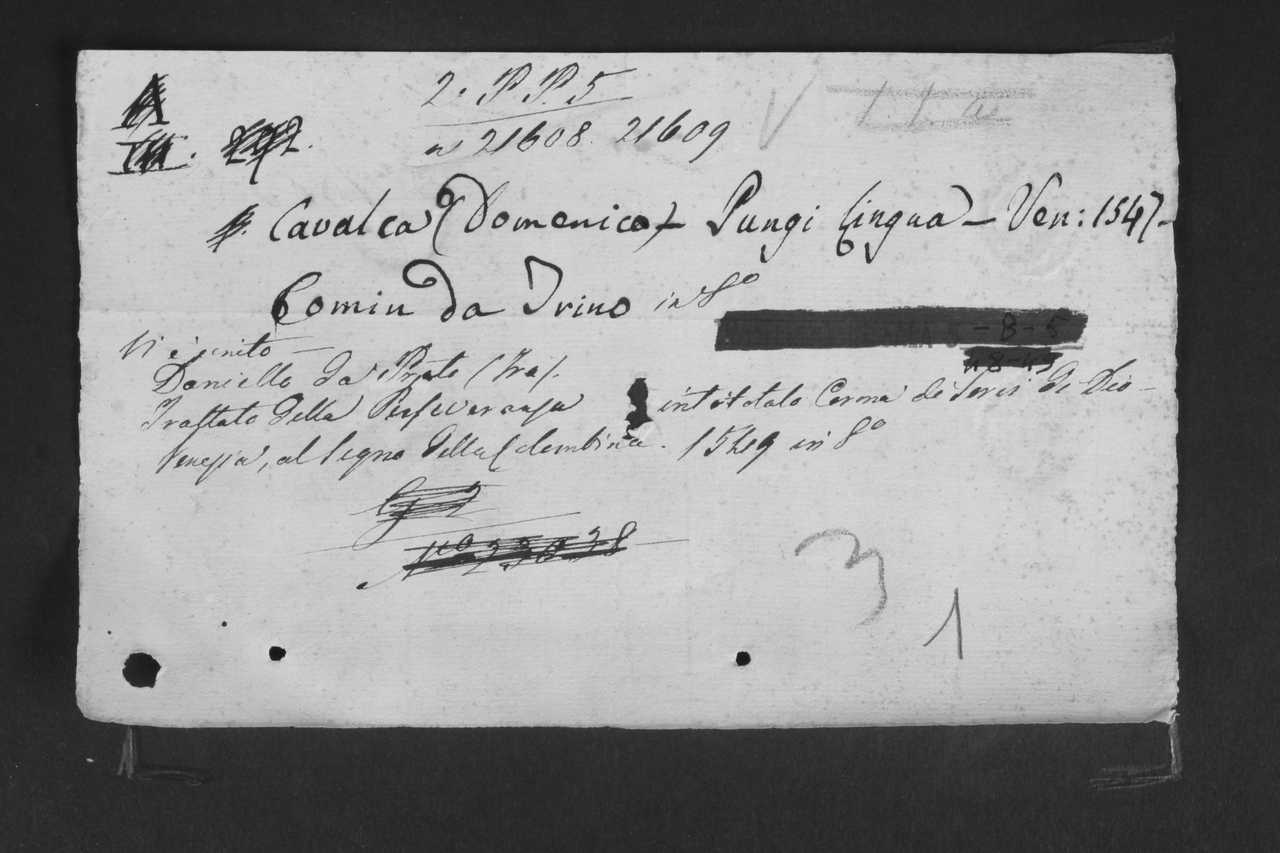 2. P. P. 5
n 21608. 21609
Cavalca (Domenico) - Pungi lingua - Ven: 1547 -
Comin da Trino in 8º
- 8 - 5
48-45
Vi è unito -
Daniello da Prato (Fra).
Trattato della Perseveranza intitolato Corona de Servi di Dio -
Venezia, al segno della Colombina. 1549 in 8º
Nº 23038
3
1